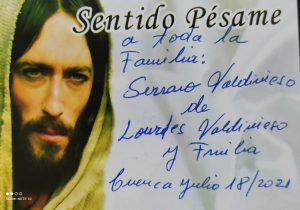 Sentido Pésame
a toda la
Familia:
Serrano Valdivieso
de
Lourdes Valdivieso
y Fmilia
Cuenca julio 18/2021